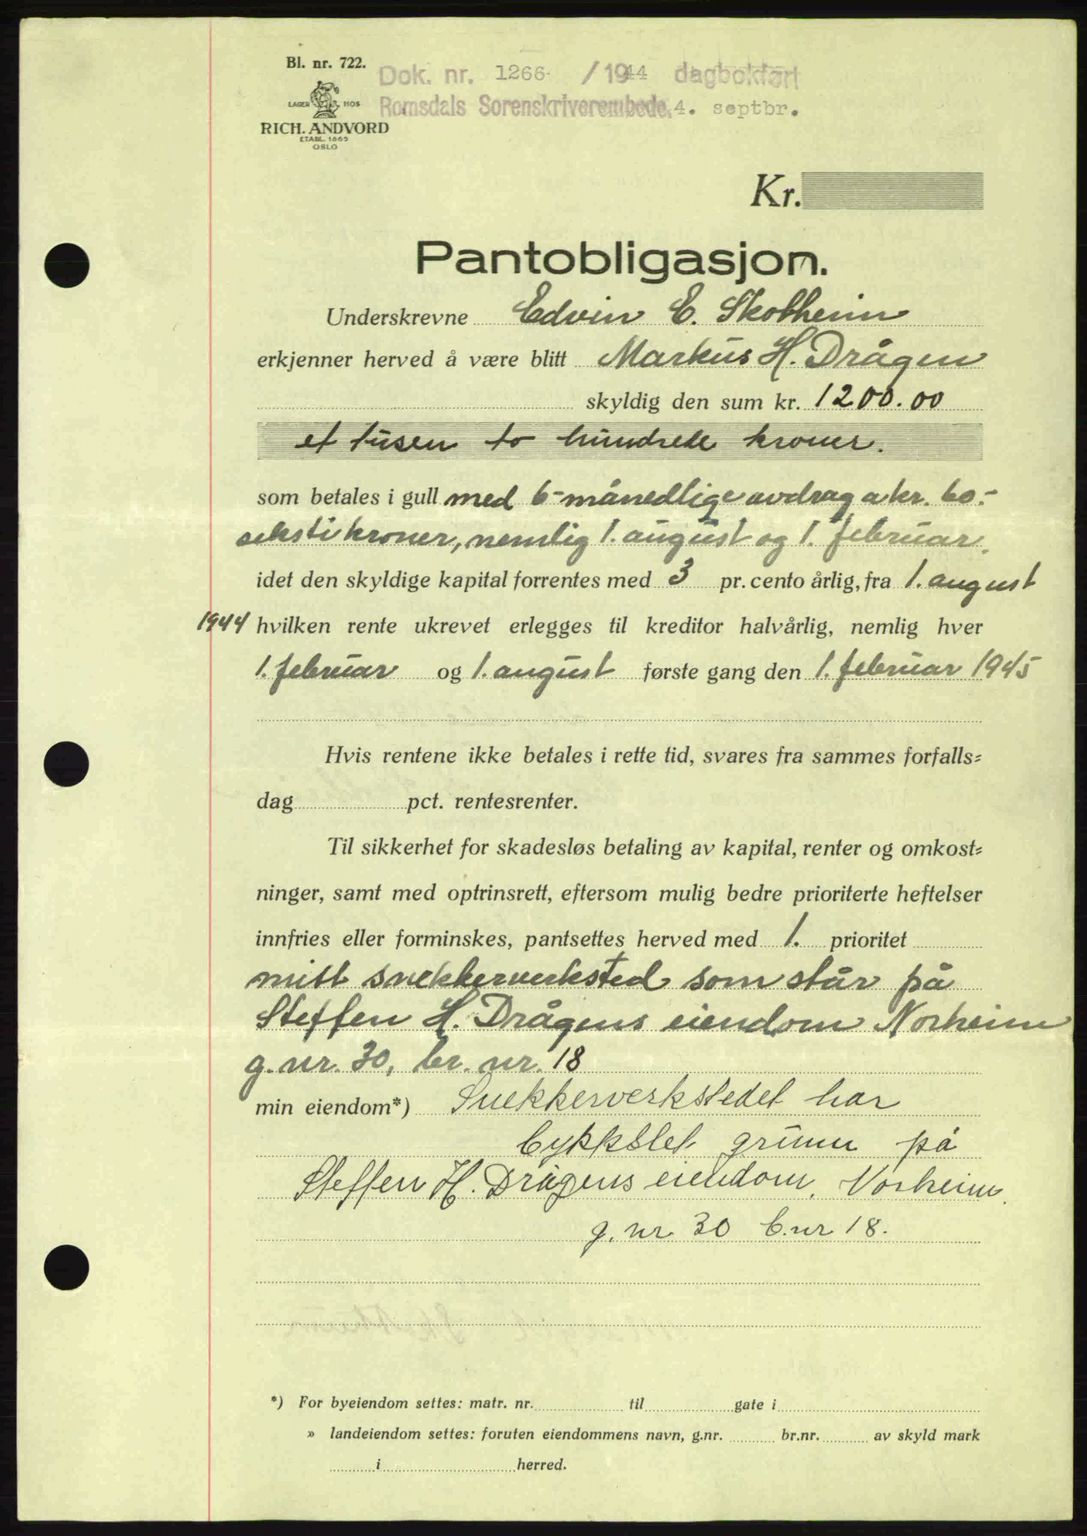 Bl. nr. 722.
Dok. nr. 1266 /1944 dagbokført
Romsdals Sorenskriverembede, 4. septbr.
LAGER HOS
RICH. ANDVORD
ETABL. 1865
OSLO
Kr.
Pantobligasjon.
Underskrevne Edvin E. Skotheim
erkjenner herved å være blitt Markus H. Drågen
skyldig den sum kr. 1200.00
et tusen to hundrede kroner.
som betales i gull med 6-månedlige avdrag a kr. 60.-
seksti kroner, nemlig 1. august og 1. februar.
idet den skyldige kapital forrentes med 3 pr. cento årlig, fra 1. august
1944 hvilken rente ukrevet erlegges til kreditor halvårlig, nemlig hver
1. februar og 1. august første gang den 1. februar 1945
Hvis rentene ikke betales i rette tid, svares fra sammes forfalls-
dag pct. rentesrenter.
Til sikkerhet for skadesløs betaling av kapital, renter og omkost-
ninger, samt med optrinsrett, eftersom mulig bedre prioriterte heftelser
innfries eller forminskes, pantsettes herved med 1. prioritet
mitt snekkerverksted som står på
Steffen H. Drågens eiendom Norheim
g. nr. 30, br. nr. 18
min eiendom*) Snekkerverkstedet har
bykslet grunn på
Steffen H. Drågens eiendom, Norheim,
g. nr 30 b. nr 18.
*) For byeiendom settes: matr. nr. til gate i
» landeiendom settes: foruten eiendommens navn, g.nr. br.nr. av skyld mark
i herred.